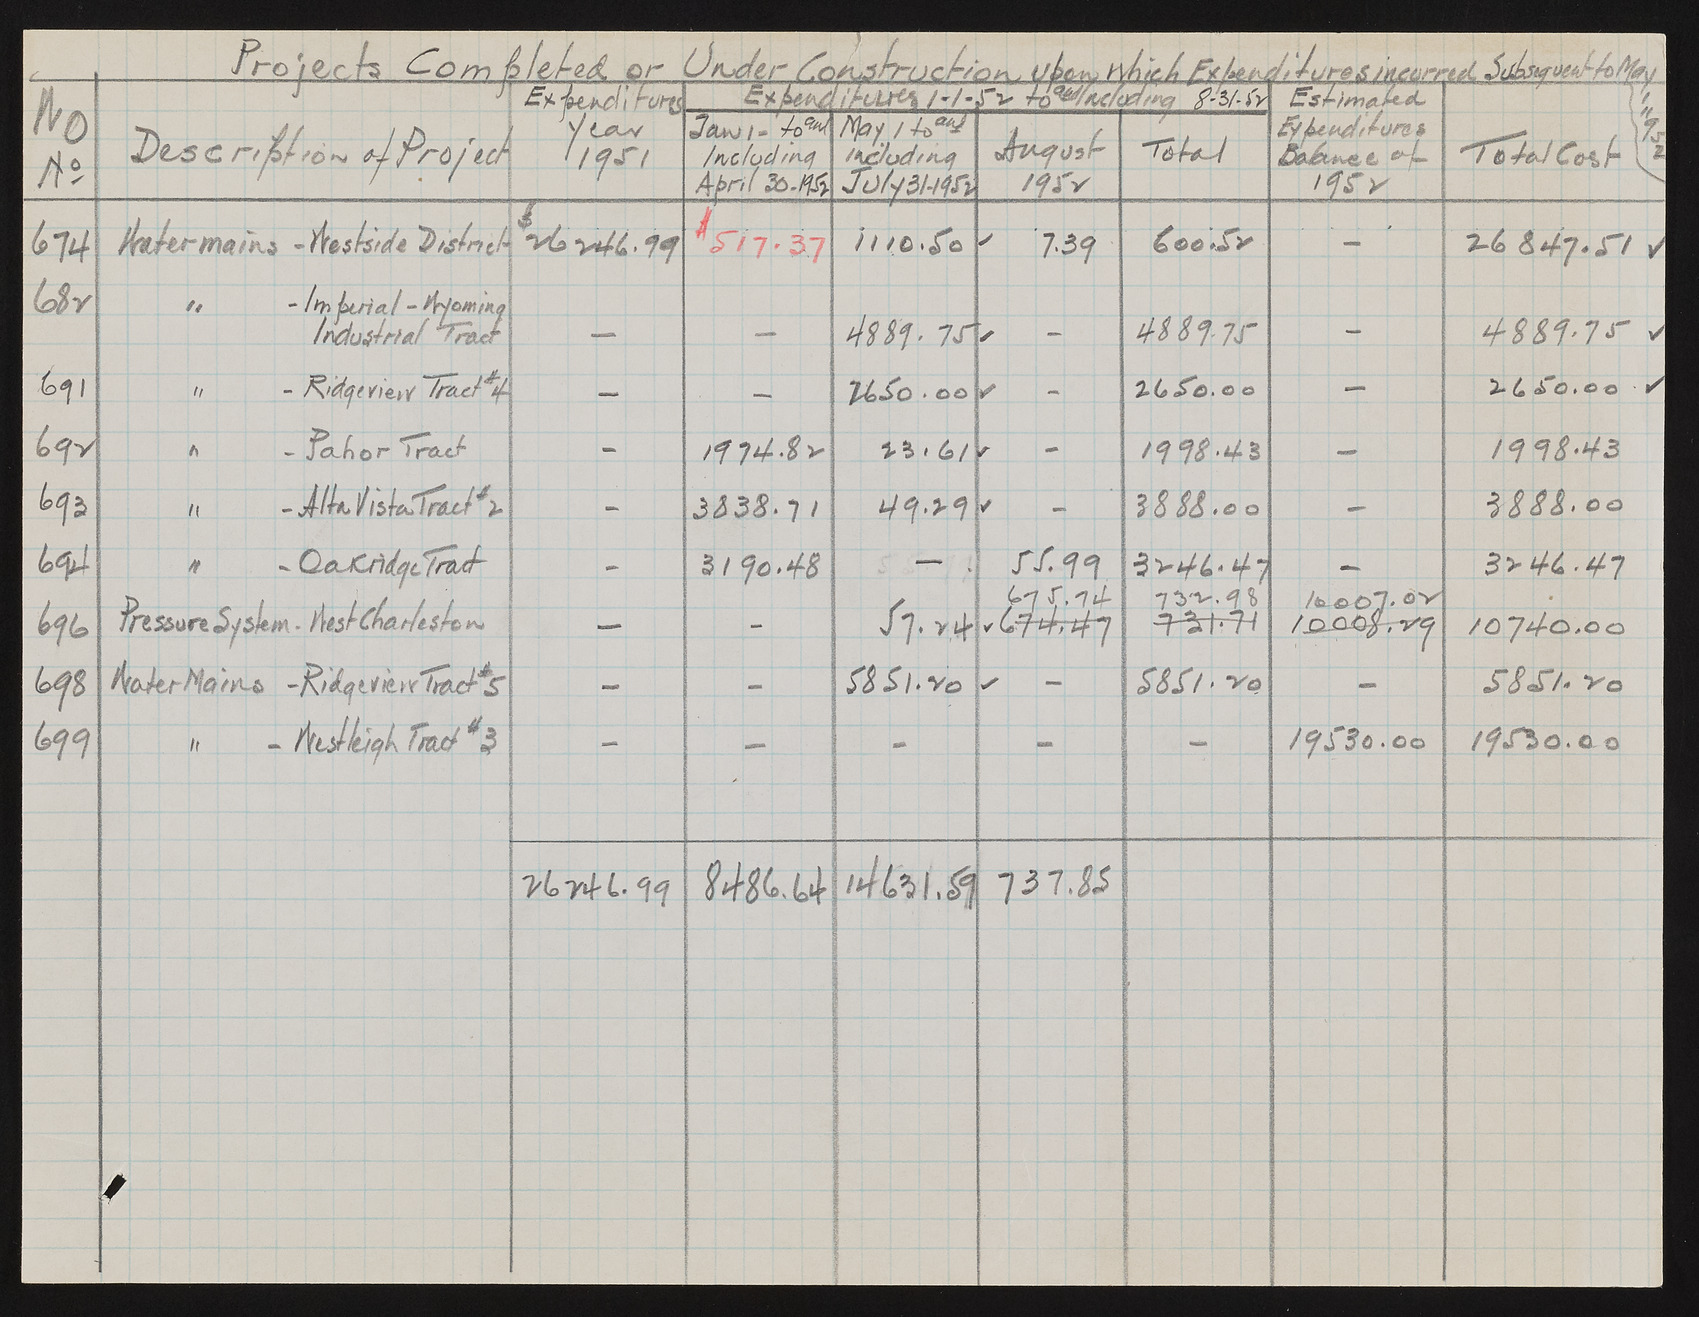 Projects Completed or Under Construction upon which Expenditures incurred Subsequent to May 1 1952
WO Nº
Description of Project
Expenditures Year 1951
Expenditures 1-1-52 to and Including 8-31-52
Jan 1 - to and Including April 30-1952
May 1 to and including July 31-1952
August 1952
Total
Estimated Expenditures Balance of 1952
Total Cost
674 Water mains - Westside District $26246.99 $517.37 1110.50 ✓ 7.39 600.52 - 26847.51 ✓
682 " - Imperial - Wyoming
Industrial Tract - - 4889.75 ✓ - 4889.75 - 4889.75 ✓
691 " - Ridgeview Tract #4 - - 2650.00 ✓ - 2650.00 - 2650.00 ✓
692 " - Pahor Tract - 1974.82 23.61 ✓ - 1998.43 - 1998.43
693 " - Alta Vista Tract #2 - 3838.71 49.29 ✓ - 3888.00 - 3888.00
694 " - Oakridge Tract - 3190.48 - 55.99 3246.47 - 3246.47
675.74 732.98 10007.02
696 Pressure System - West Charleston - - 57.24 ✓ 674.47 731.71 10008.29 10740.00
698 Water Mains - Ridgeview Tract #5 - - 5851.20 ✓ - 5851.20 - 5851.20
699 " - Westleigh Tract #3 - - - - - 19530.00 19530.00
26246.99 8486.64 14631.59 737.85